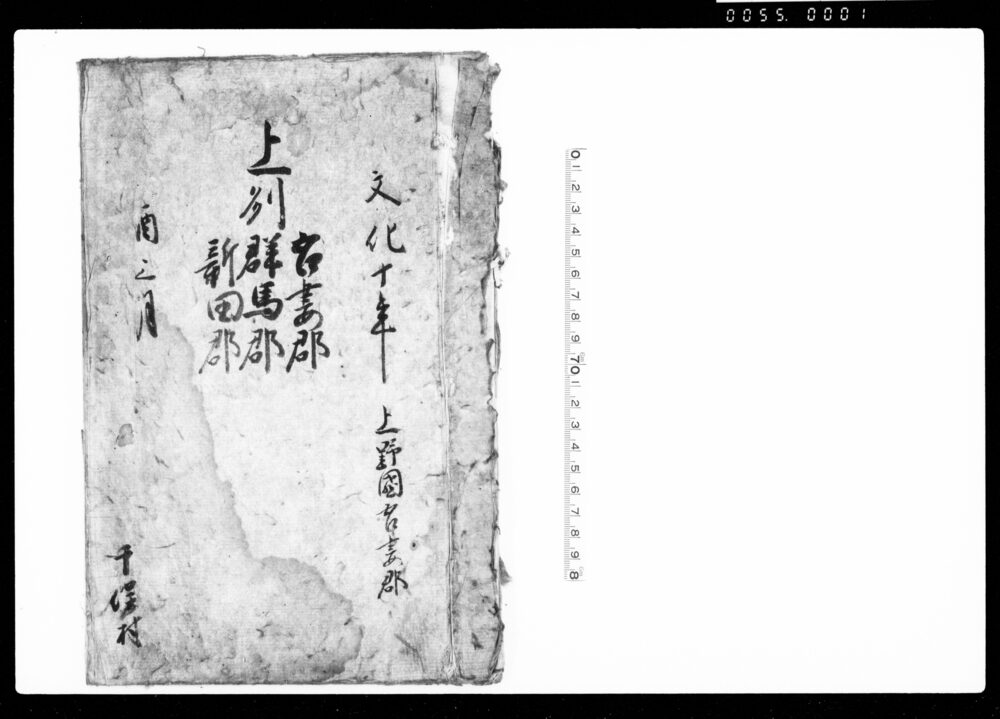 0055. 0001
文化十年 上野國吾妻郡
上列
吾妻郡
群馬郡
新田郡
酉三月
干俣村
0 1 2 3 4 5 6 7 8 9 70 1 2 3 4 5 6 7 8 9 8